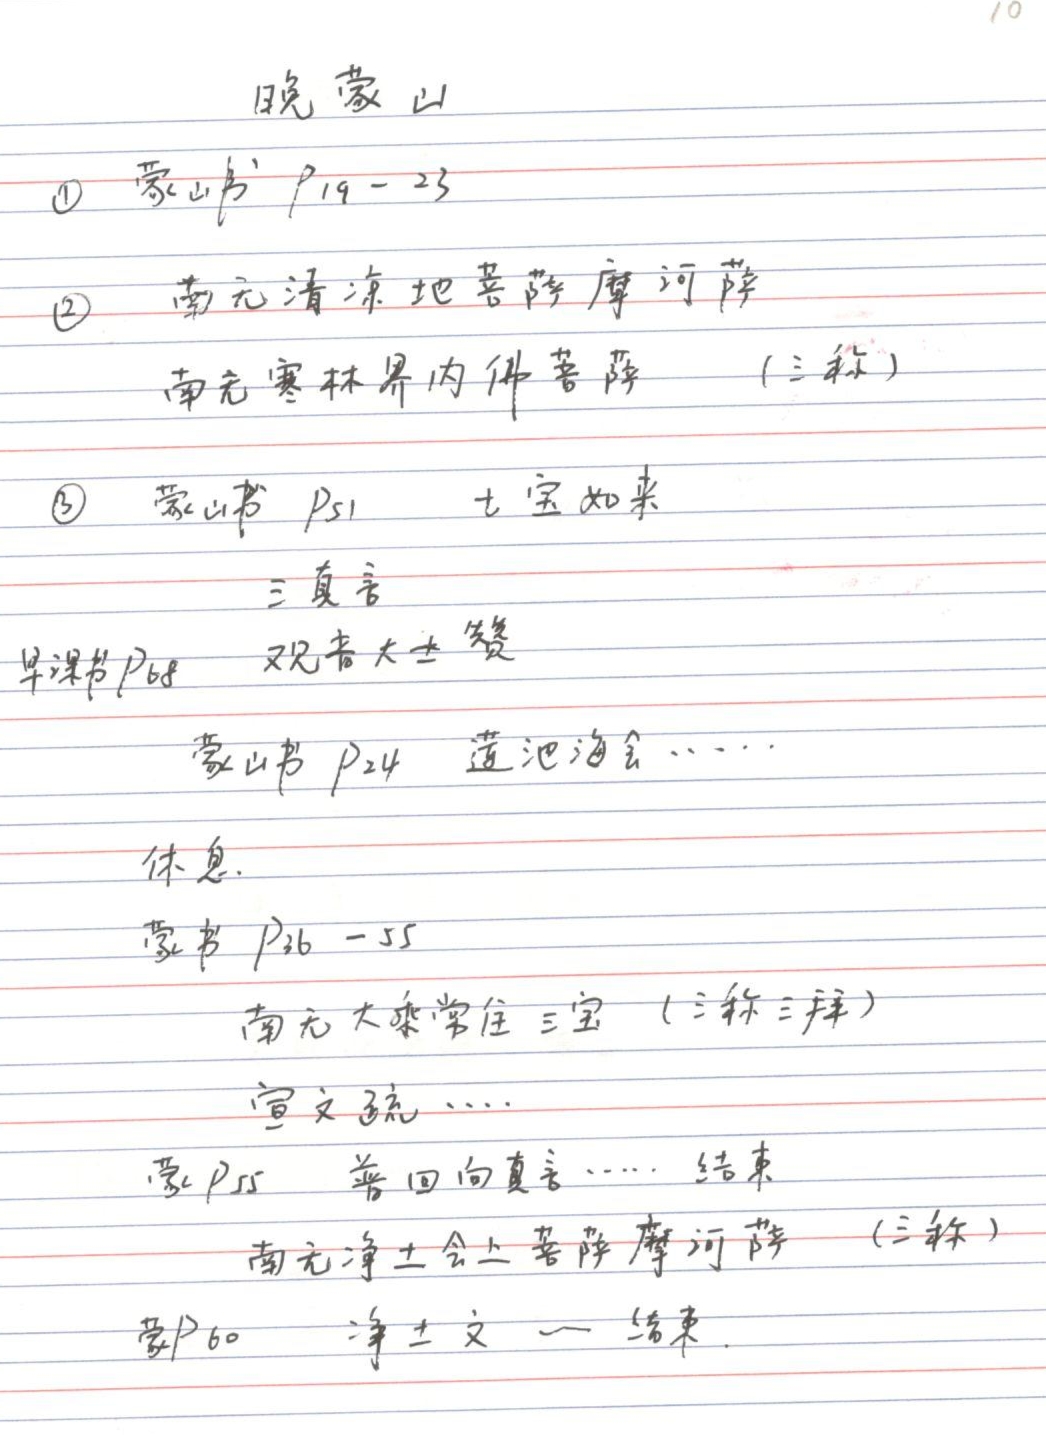 10
晚蒙山
① 蒙山书 P19-23
② 南无清凉地菩萨摩诃萨
南无寒林界内佛菩萨 (三称)
③ 蒙山书 P51 七宝如来
三真言
早课书P68 观音大士赞
蒙山书 P24 莲池海会……
休息.
蒙书 P36-55
南无大乘常住三宝 (三称三拜)
宣文疏....
蒙P55 普回向真言…… 结束
南无净土会上菩萨摩诃萨 (三称)
蒙P60 净土文 — 结束.